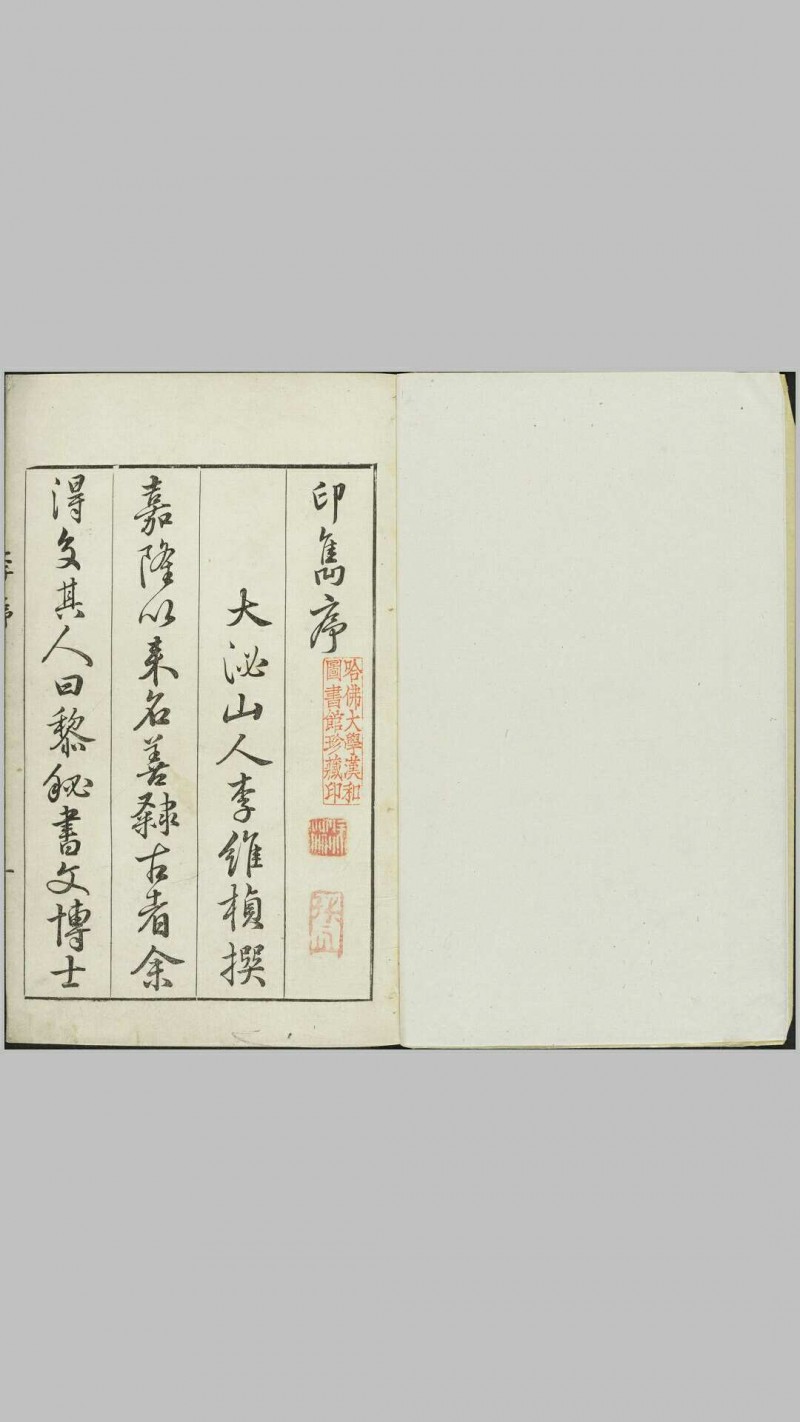 印雋序
大泌山人李維楨撰
嘉隆以來名善隸古者余
得交其人曰黎秘書文博士
哈佛大學漢和
圖書館珍藏印